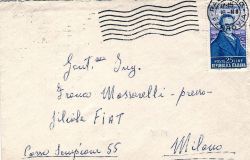 Gent. Ing.
Franco Massarelli - presso
Filiale FIAT
Corso Sempione 55
Milano
POSTE LIRE 25
REPUBBLICA ITALIANA